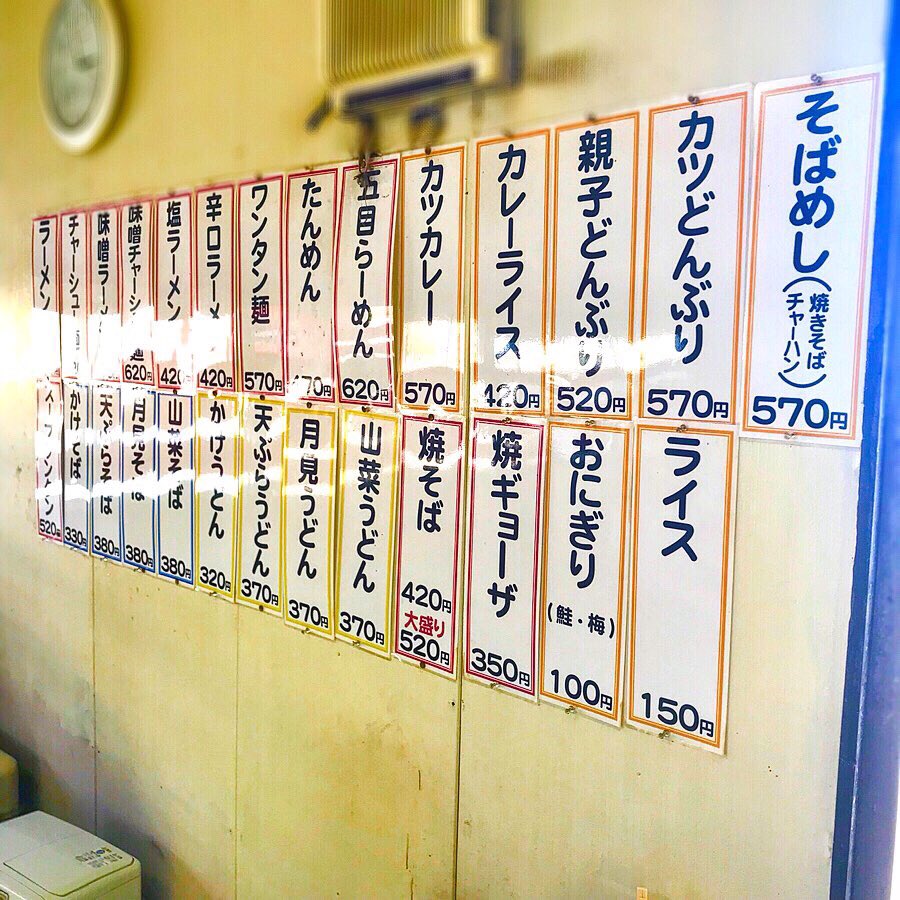 そばめし(焼きそば
チャーハン)
570円
カツどんぶり
570円
親子どんぶり
520円
カレーライス
420円
カツカレー
570円
五目らーめん
620円
たんめん
470円
ワンタン麺
570円
辛口ラーメン
420円
塩ラーメン
420円
味噌チャーシュー麺
620円
味噌ラーメン
チャーシュー
ラーメン
ライス
150円
おにぎり
(鮭・梅)
100円
焼ギョーザ
350円
焼そば
420円
大盛り
520円
山菜うどん
370円
月見うどん
370円
天ぷらうどん
370円
かけうどん
320円
山菜そば
380円
月見そば
380円
天ぷらそば
380円
かけそば
330円
520円